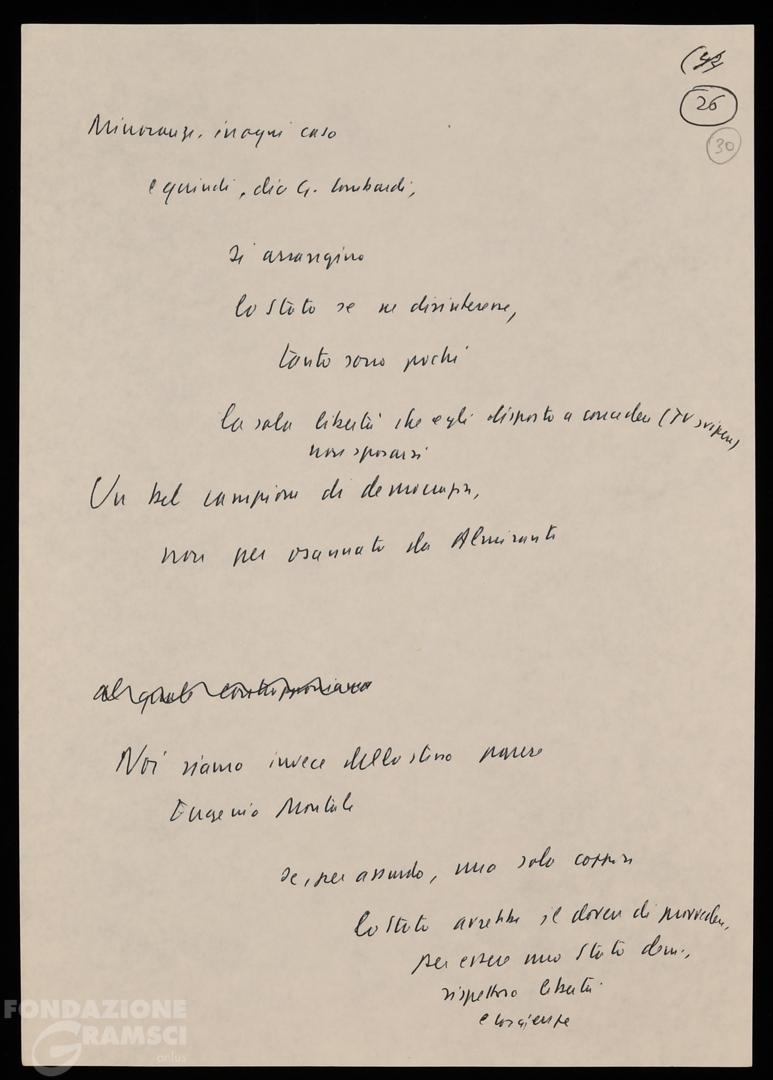 26
30
Minoranze, in ogni caso
e quindi, dice G. Lombardi,
si arrangino
lo Stato se ne disinteressa,
tanto sono pochi
la sola libertà che egli disposto a concedere (TV svizzera)
non sposarsi
Un bel campione di democrazia,
non per osannato da Almirante
al quale contrapponiamo
Noi siamo invece dello stesso parere
Eugenio Montale
se, per assurdo, una sola coppia
lo Stato avrebbe il dovere di provvedere,
per essere uno Stato dem.,
rispettoso libertà
e coscienze
FONDAZIONE
GRAMSCI
onlus